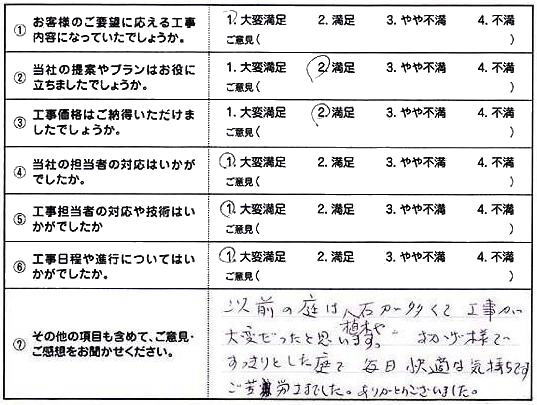 ① お客様のご要望に応える工事 1. 大変満足 2. 満足 3. やや不満 4. 不満
内容になっていたでしょうか。 ご意見( )
② 当社の提案やプランはお役に 1. 大変満足 2. 満足 3. やや不満 4. 不満
立ちましたでしょうか。 ご意見( )
③ 工事価格はご納得いただけま 1. 大変満足 2. 満足 3. やや不満 4. 不満
したでしょうか。 ご意見( )
④ 当社の担当者の対応はいかが 1. 大変満足 2. 満足 3. やや不満 4. 不満
でしたか。 ご意見( )
⑤ 工事担当者の対応や技術はい 1. 大変満足 2. 満足 3. やや不満 4. 不満
かがでしたか ご意見( )
⑥ 工事日程や進行についてはい 1. 大変満足 2. 満足 3. やや不満 4. 不満
かがでしたか。 ご意見( )
⑦ その他の項目も含めて、ご意見・
ご感想をお聞かせください。
以前の庭は植木や石が多くて工事が
大変だったと思います。おかげ様で
すっきりとした庭で毎日快適な気持ちです
ご苦労さまでした。ありがとうございました。